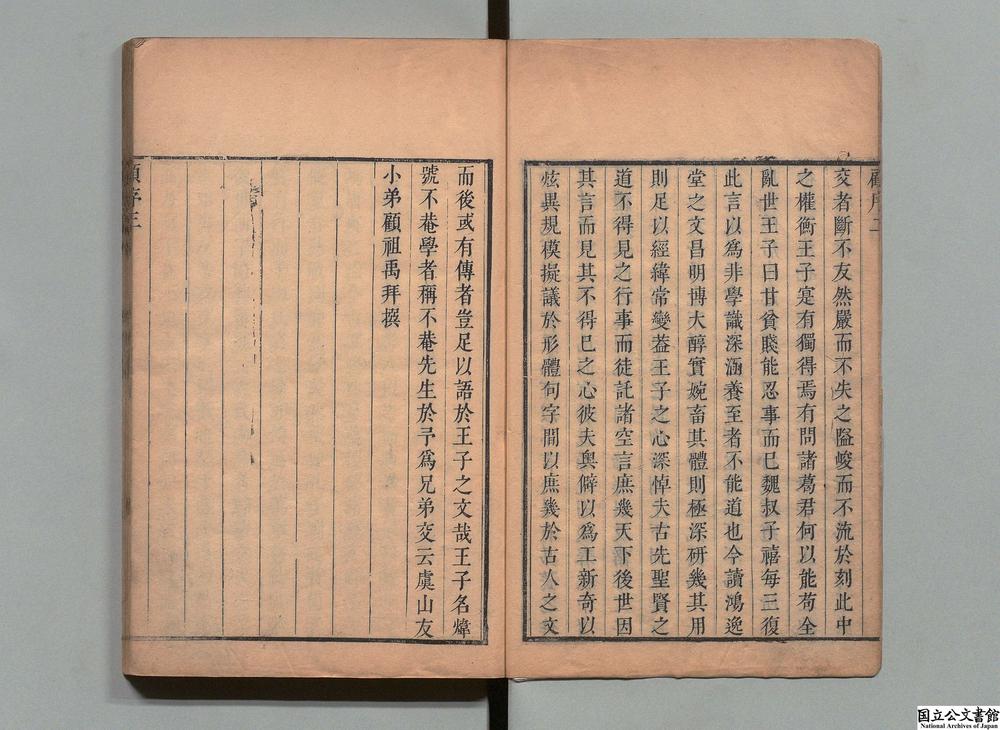 顧序二
交者斷不友然嚴而不失之隘峻而不流於刻此中
之權衡王子寔有獨得焉有問諸葛君何以能苟全
亂世王子曰甘貧賤能忍事而已魏叔子禧每三復
此言以爲非學識深涵養至者不能道也今讀鴻逸
堂之文昌明博大醇實婉畜其體則極深硏幾其用
則足以經緯常變葢王子之心深悼夫古先聖賢之
道不得見之行事而徒託諸空言庶幾天下後世因
其言而見其不得巳之心彼夫奥僻以爲工新奇以
炫異規模擬議於形體句字間以庶幾於古人之文
而後或有傳者豈足以語於王子之文哉王子名煒
號不菴學者稱不菴先生於予爲兄弟交云虞山友
小弟顧祖禹拜撰
顧序三
国立公文書館
National Archives of Japan